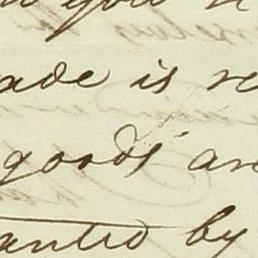 you
ade is re
goods are
anted by